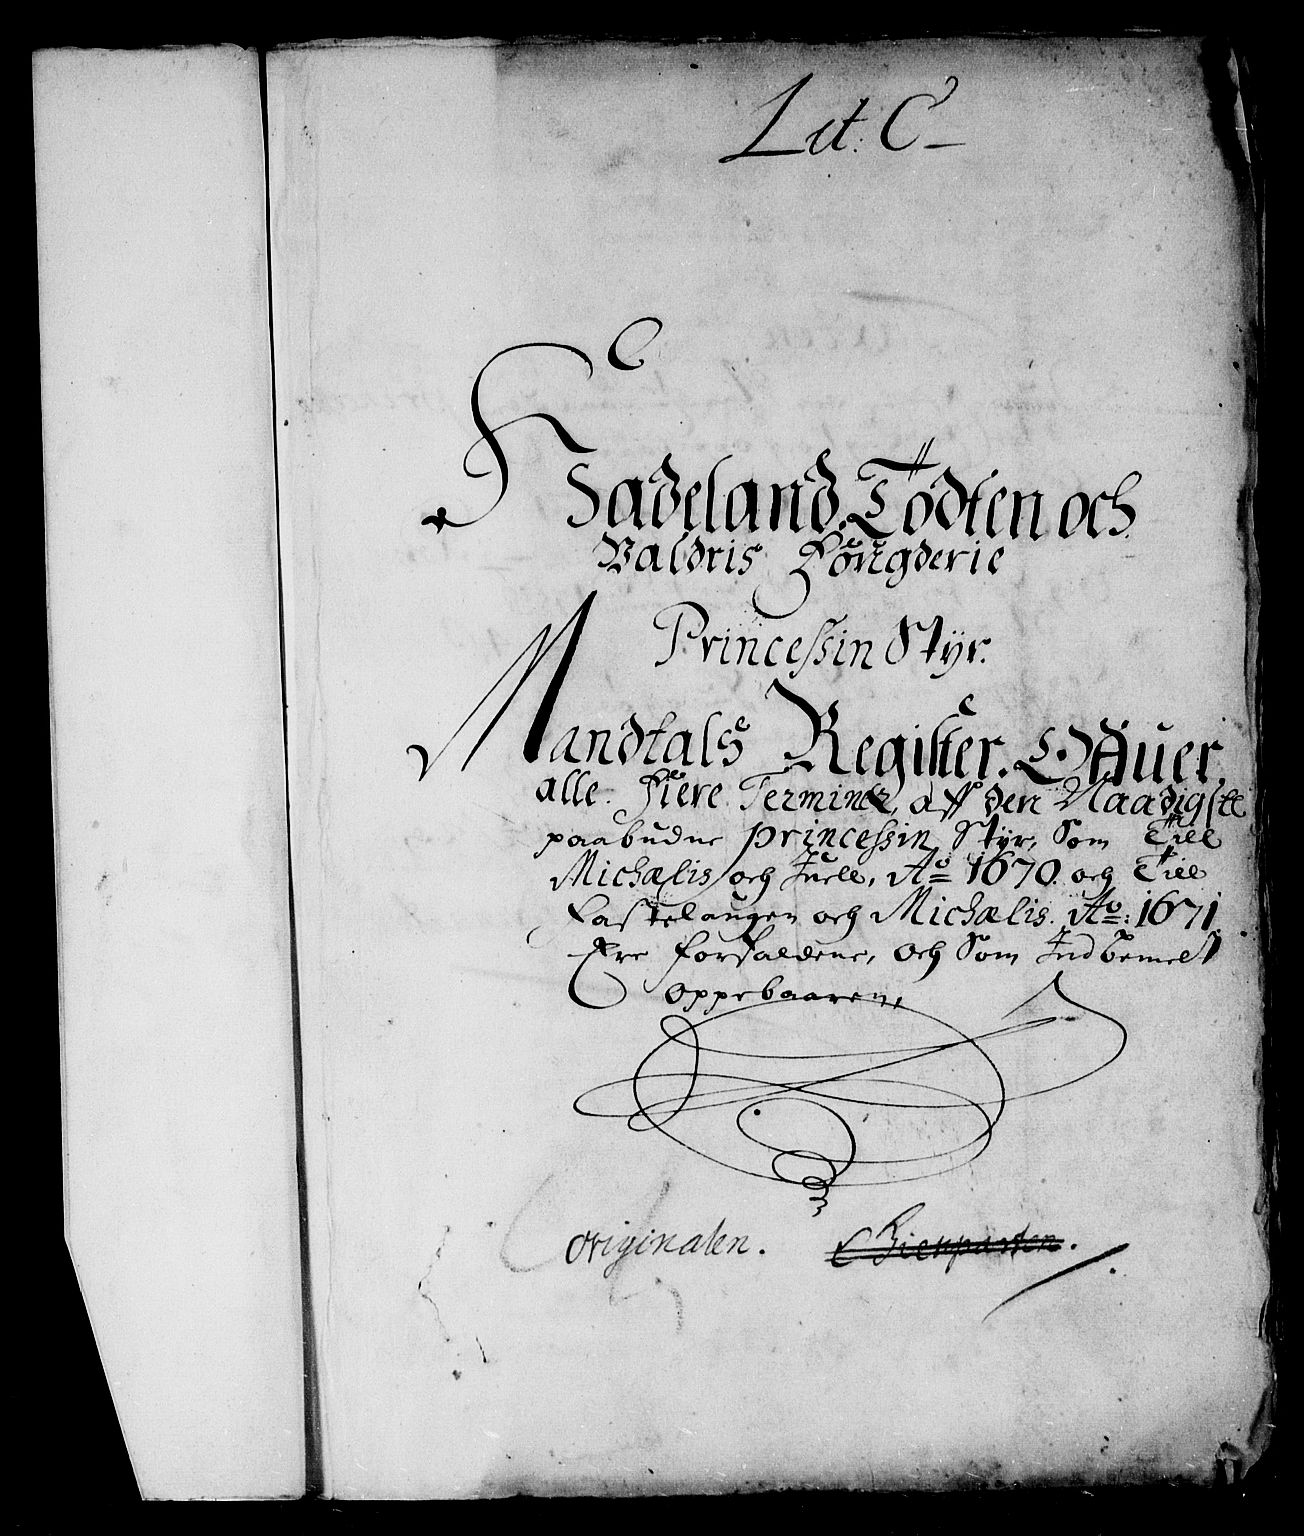 Lit: C
Hadeland, Todten och
Valdris Fougderie
Princessin Styr.
Mandtals Register. Offuer,
alle fiere Terminer, aff den Naadigste
paabudne princessin Styr, Som Till
Michælis och Juell, Ao 1670. och Till
Fastelaugen och Michælis. Ao: 1671
Ere forfaldene, och Som Indbemelt
oppebaaren,
Originalen. Gienparten.